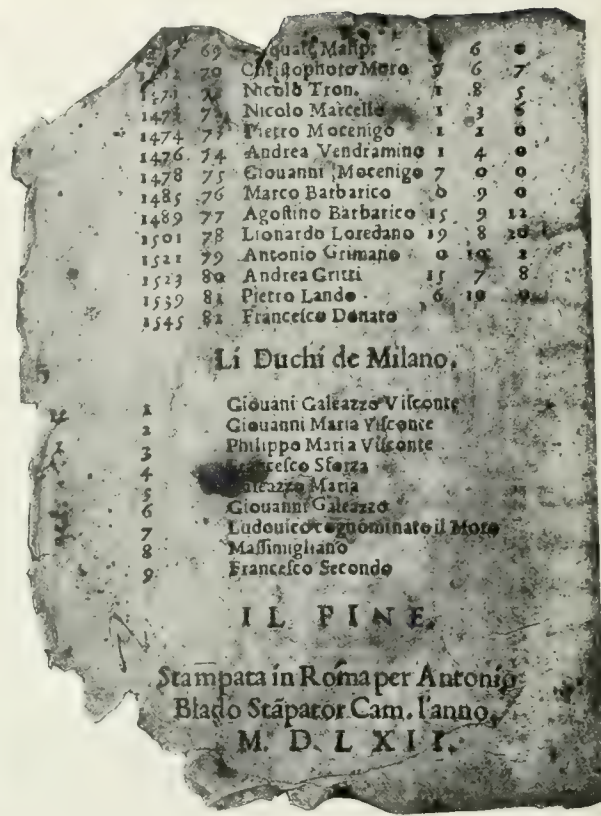 69 Pasquale Malipi 6 0
70 Christophoro Moro 9 6 7
Nicolò Tron. 1 8 5
Nicolo Marcello 1 3 6
1474 73 Pietro Mocenigo 1 2 0
1476 74 Andrea Vendramino 1 4 0
1478 75 Giouanni Mocenigo 7 0 0
1485 76 Marco Barbarico 0 9 0
1489 77 Agoſtino Barbarico 15 9 12
1501 78 Lionardo Loredano 19 8 20
1521 79 Antonio Grimano 0 10 2
1523 80 Andrea Gritti 15 7 8
1539 81 Pietro Lando 6 10 0
1545 82 Franceſco Donato
Li Duchi de Milano.
1 Giouani Galeazzo Viſconte
2 Giouanni Maria Viſconte
3 Philippo Maria Viſconte
4 Franceſco Sforza
5 Galeazzo Maria
6 Giouanni Galeazzo
7 Ludouico cognominato il Moro
8 Maſſimigliano
9 Franceſco Secondo
IL FINE.
Stampata in Roma per Antonio
Blado Stãpator Cam. l'anno
M. D. L X I I.